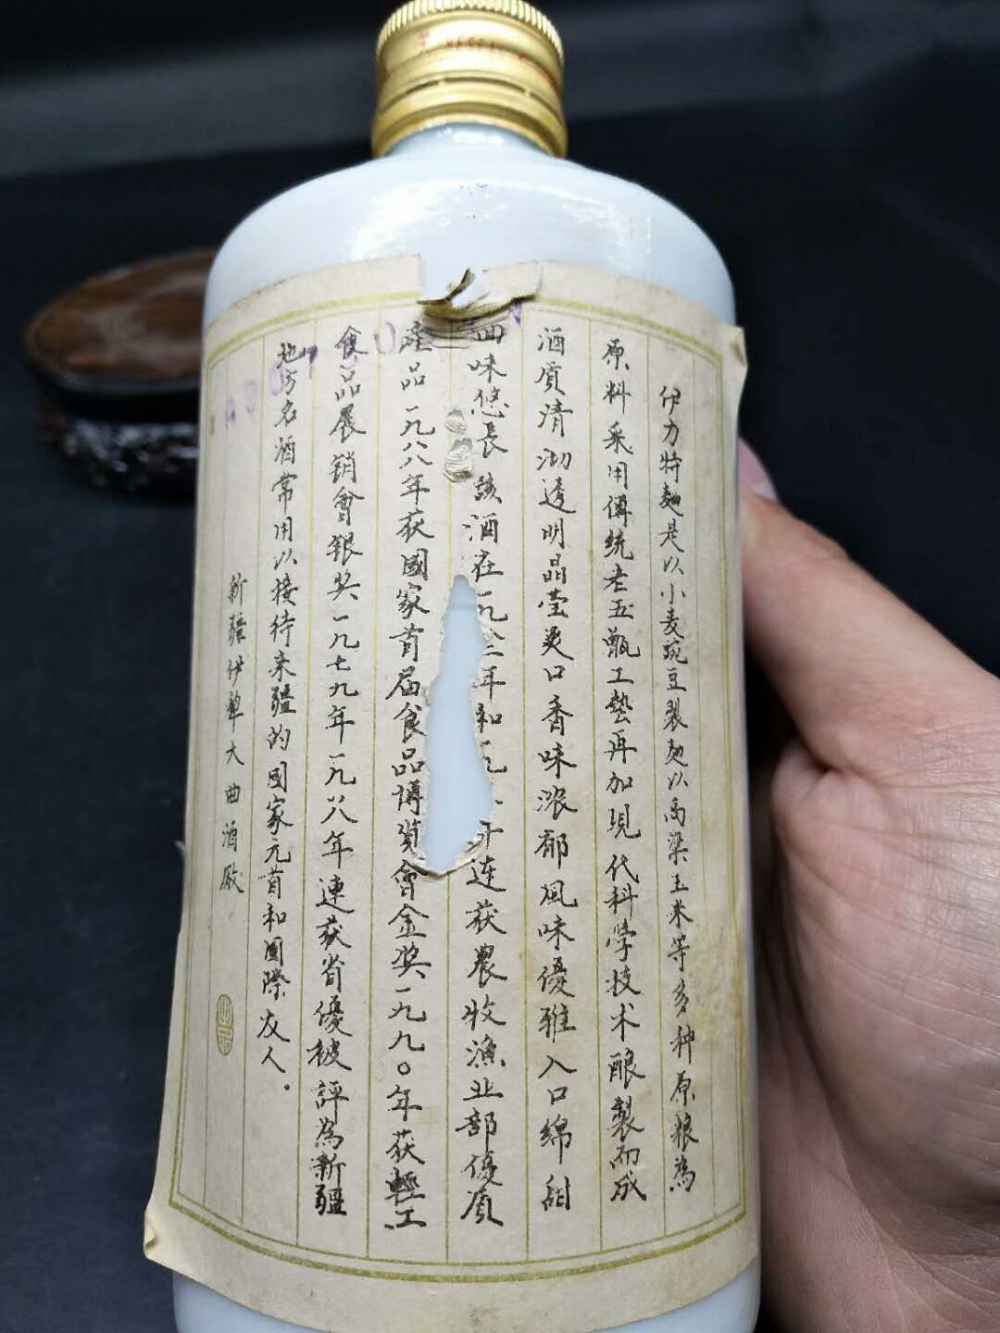 伊力特麯是以小麦豌豆製麯以高梁玉米等多种原粮為
原料采用傳統老五甑工藝再加現代科学技术酿製而成
酒质清沏透明晶莹爽口香味浓郁風味優雅入口绵甜
回味悠長該酒在一九八 年和一九 年连获農收漁业部優质
產品一九八八年获國家首届食品博覧會金奖一九九〇年获輕工
食品展销會银奖一九七九年一九八八年連获省優被評為新疆
地方名酒常用以接待来疆的国家元首和國際友人。
新疆伊犂大曲酒廠